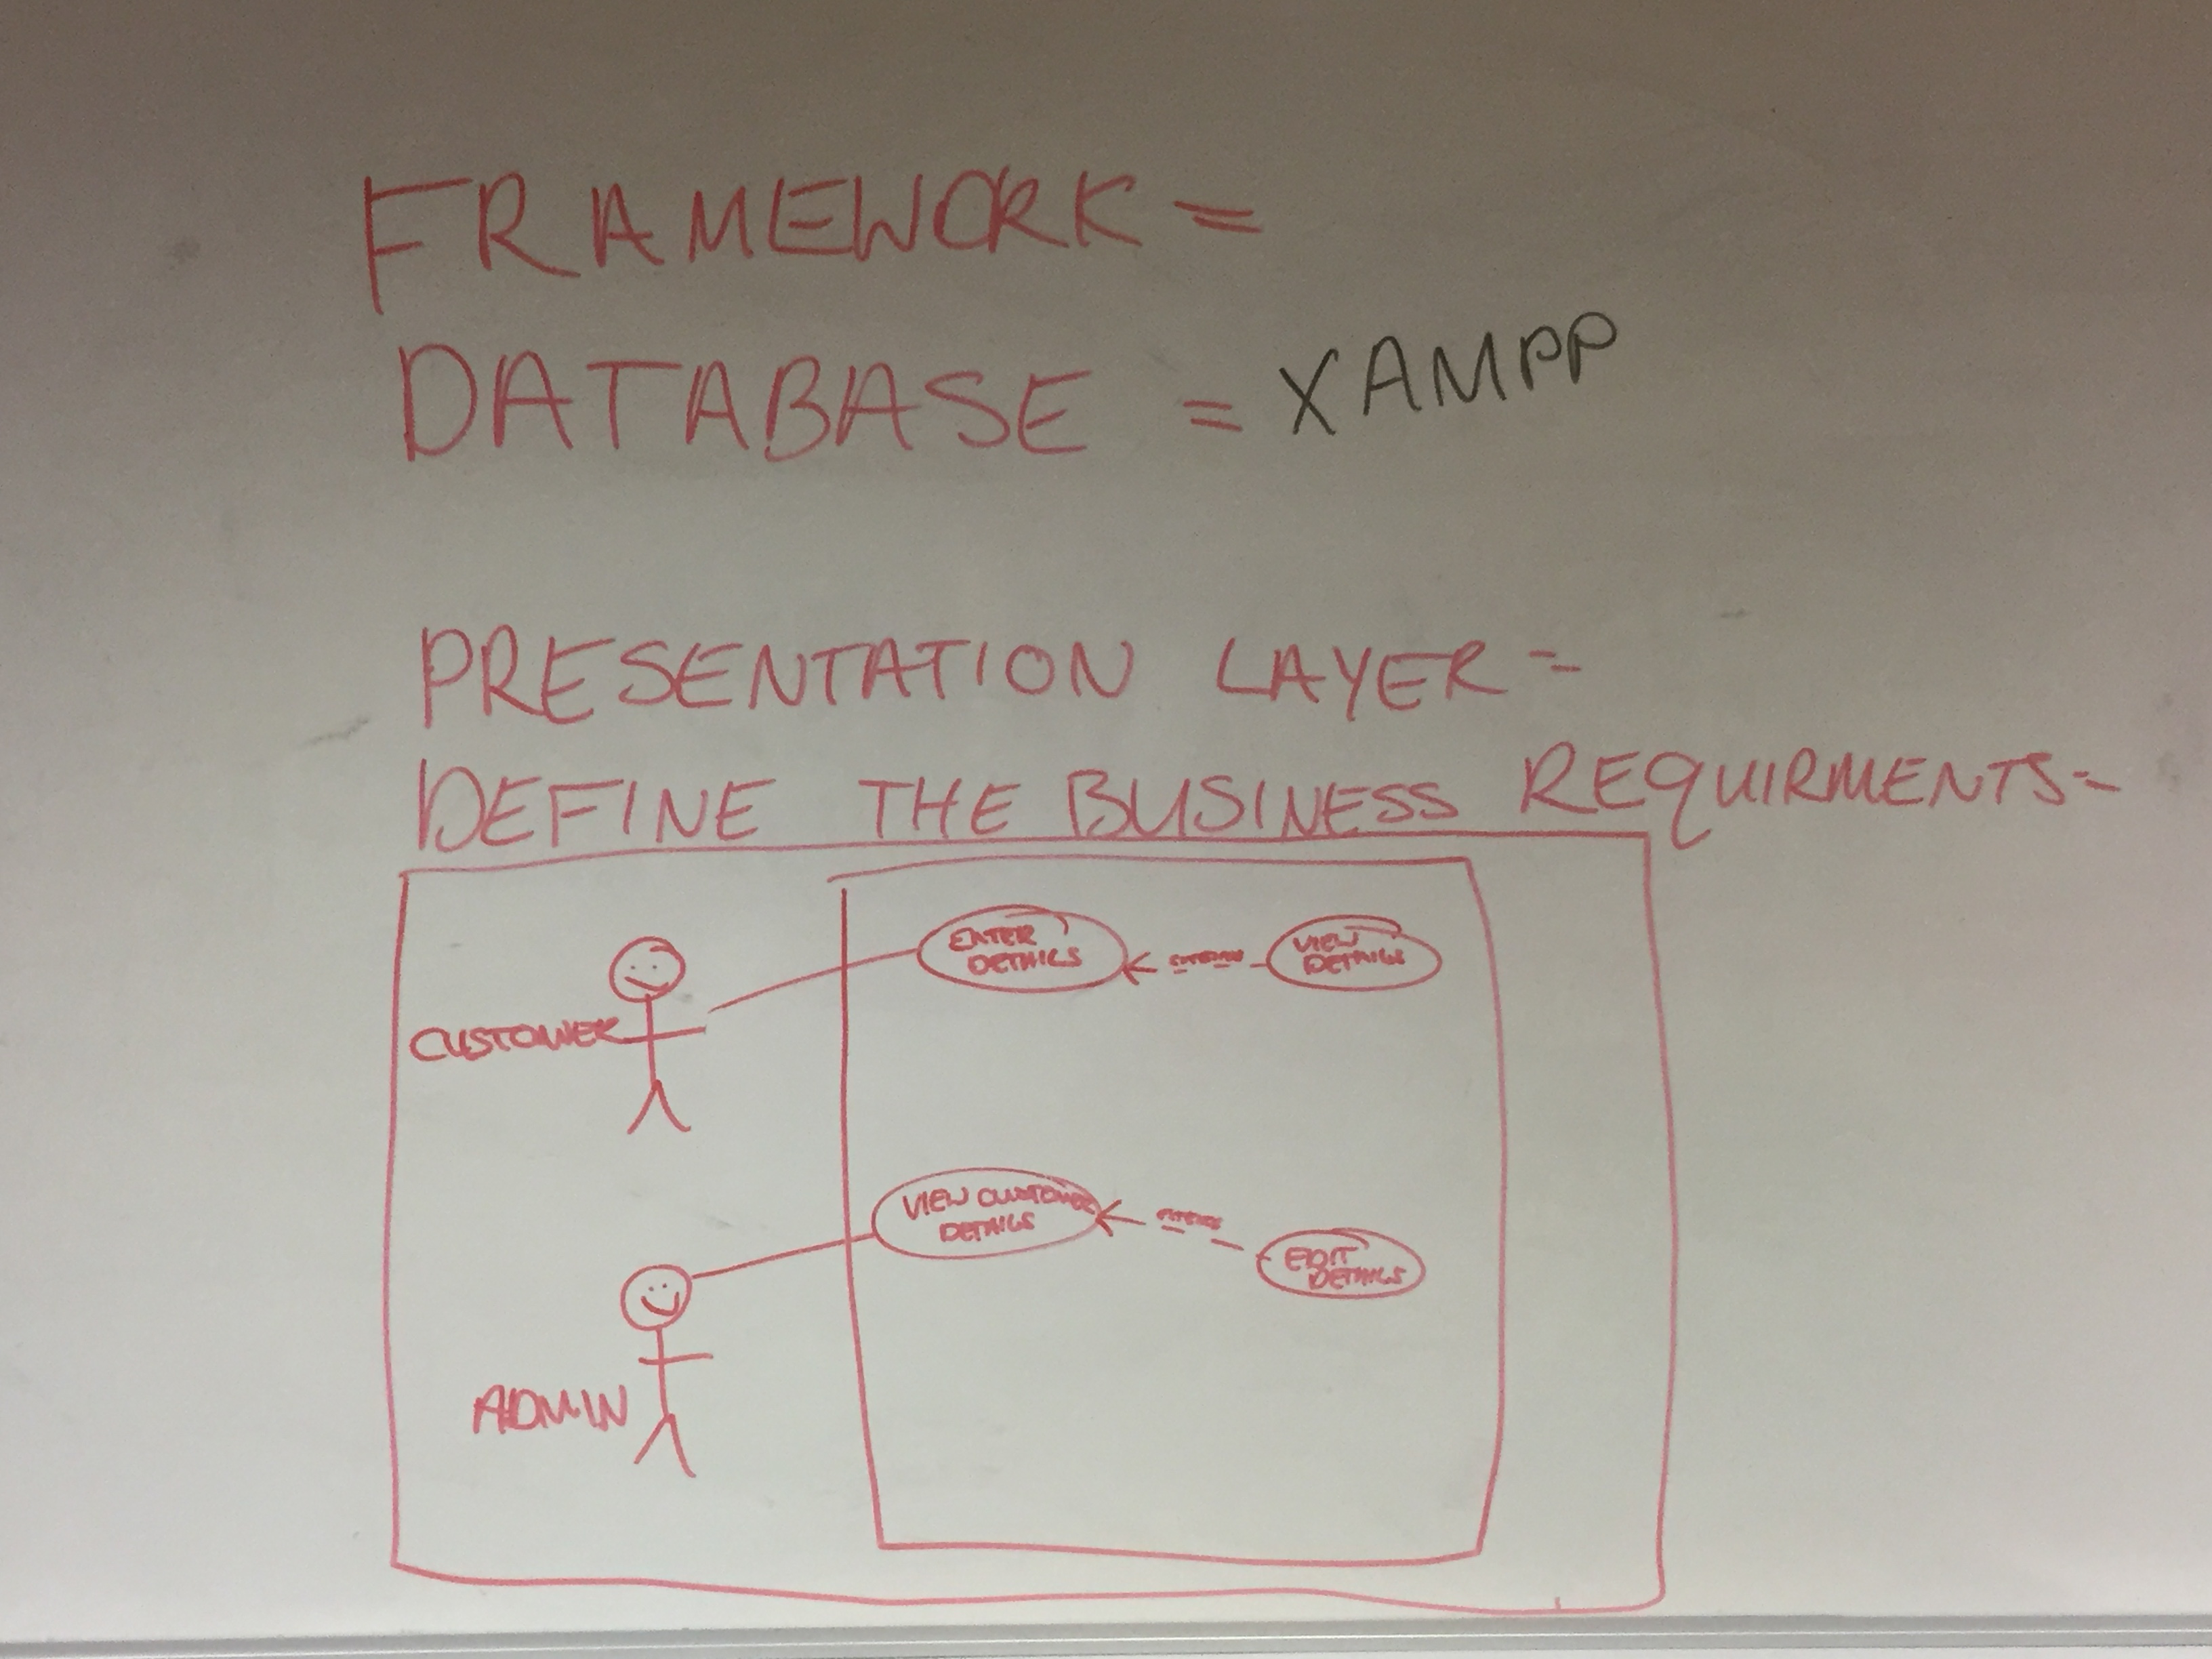 FRAMEWORK =
DATABASE = XAMPP
PRESENTATION LAYER =
DEFINE THE BUSINESS REQUIRMENTS =
ENTER
DETAILS
VIEW
DETAILS
CUSTOMER
VIEW CUSTOMER
DETAILS
EDIT
DETAILS
ADMIN